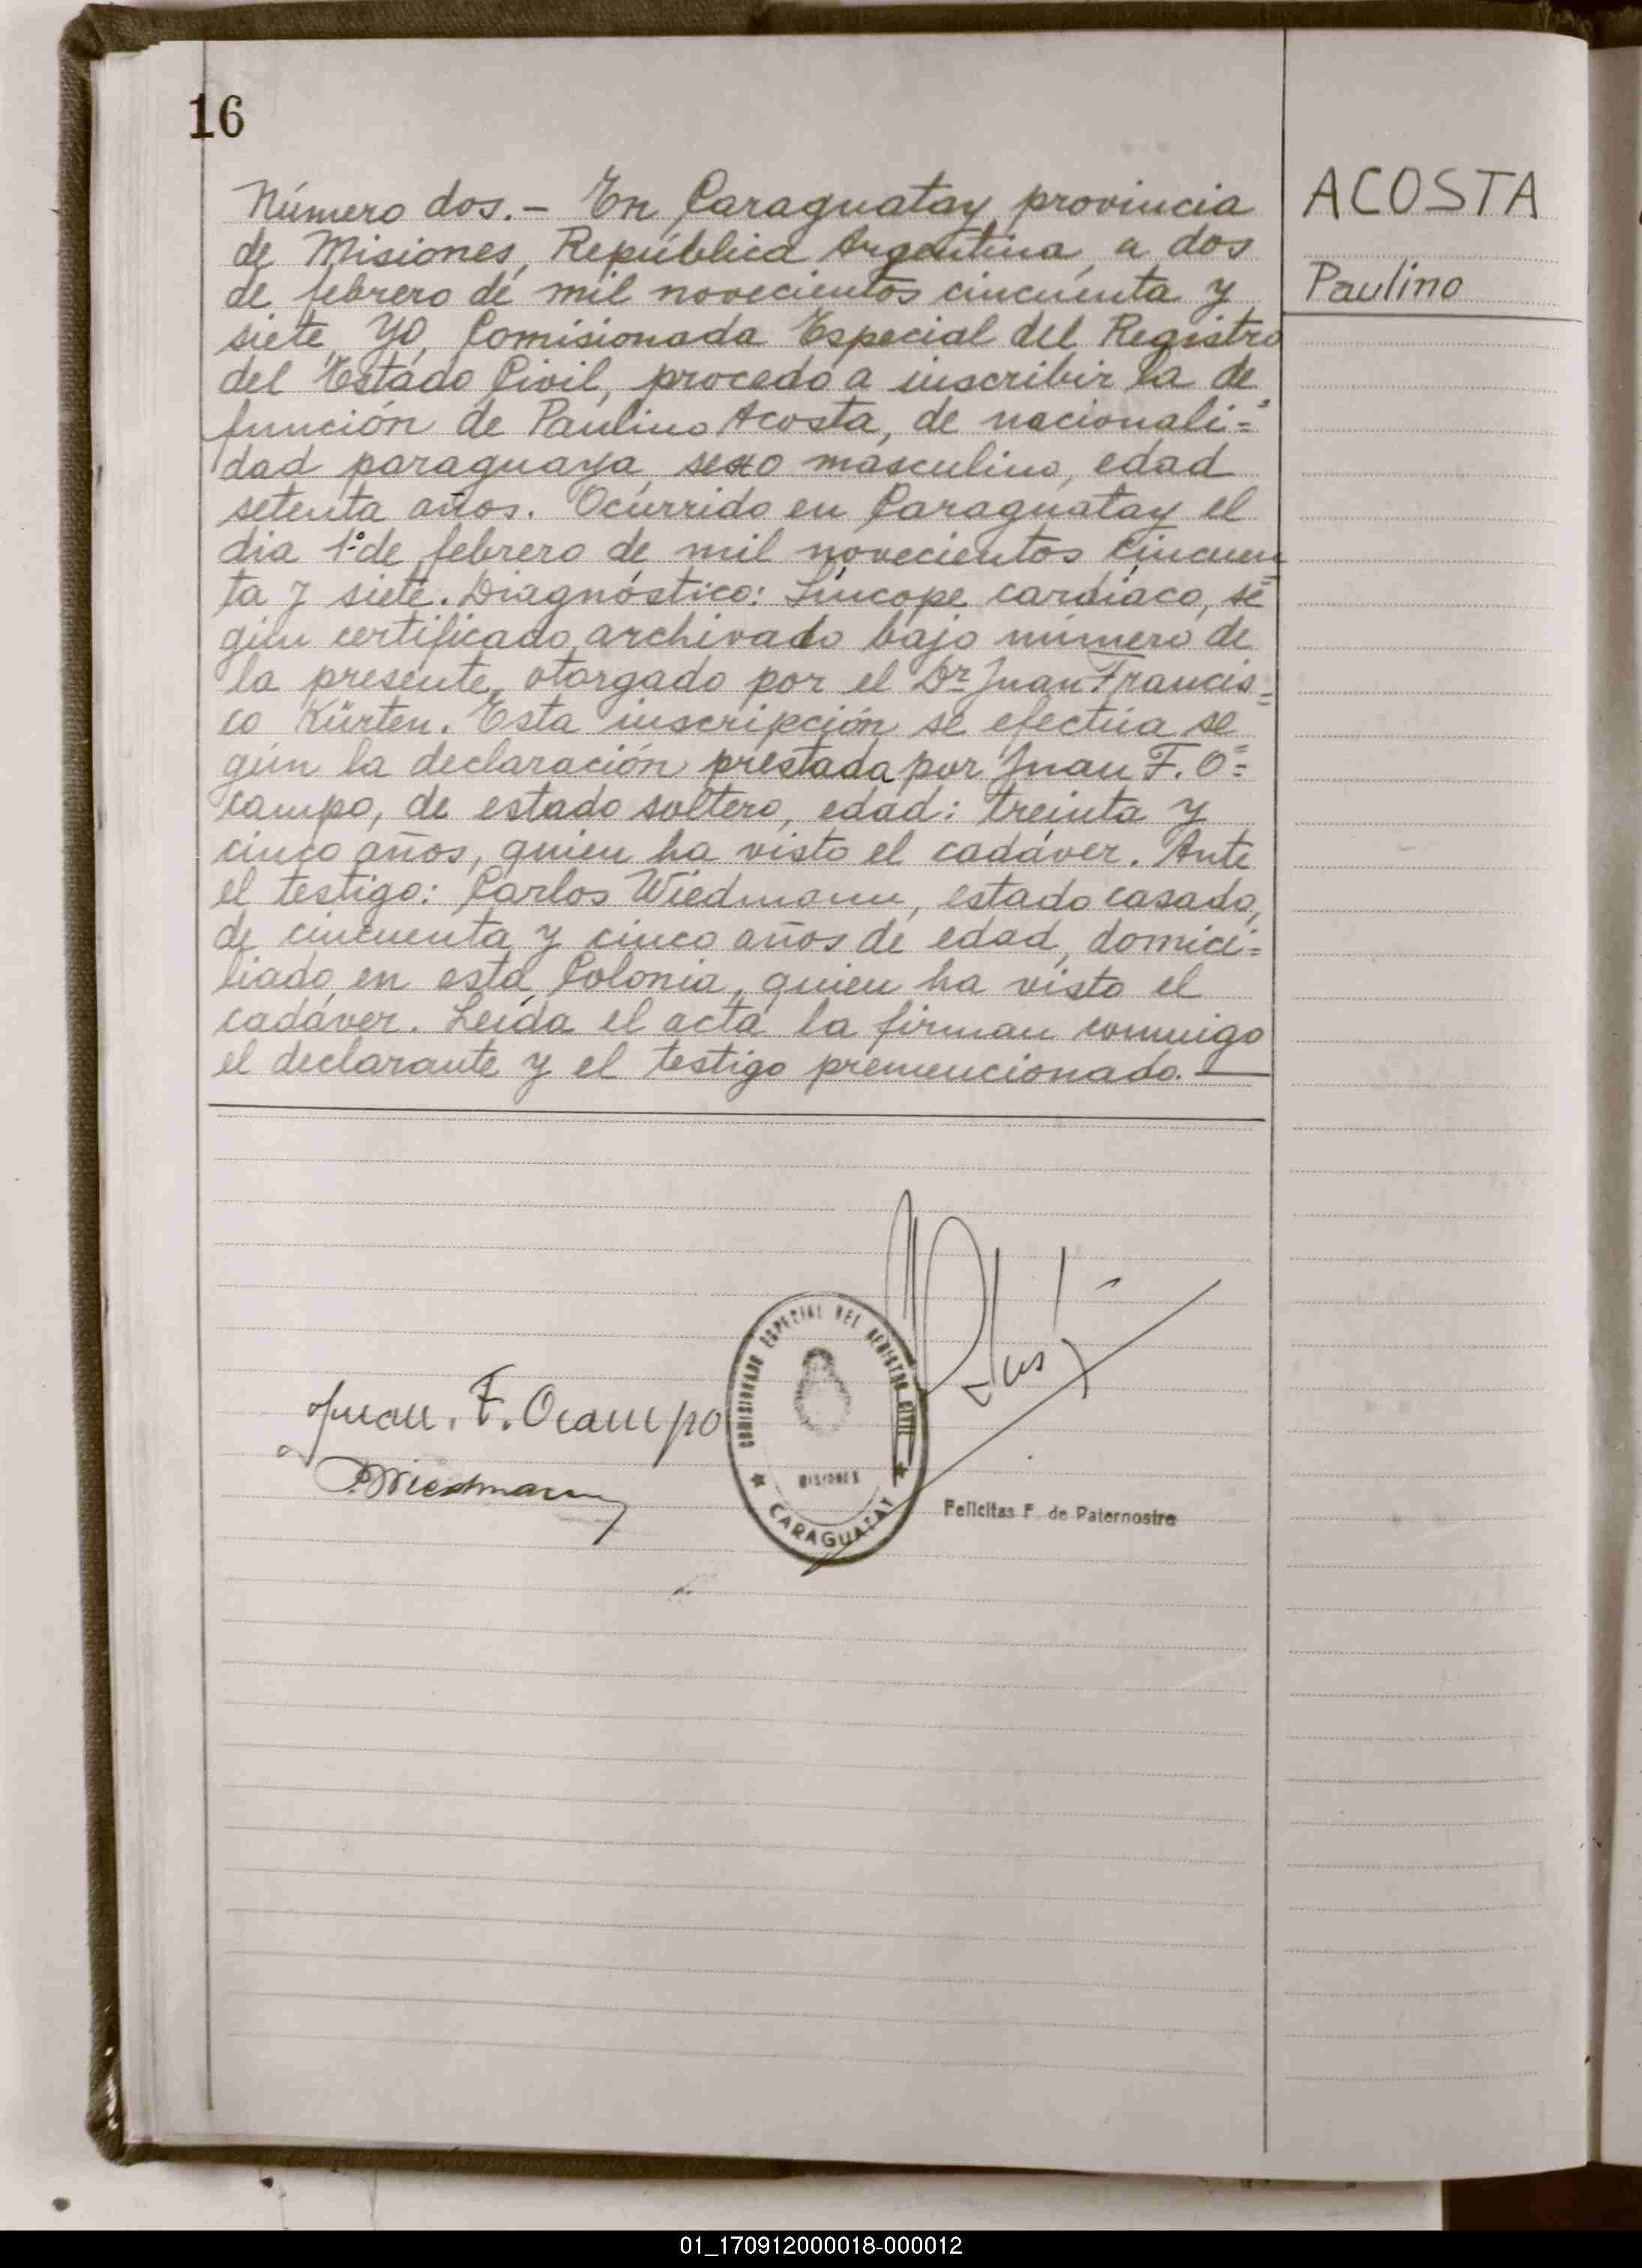 16
ACOSTA
Paulino
Número dos. - En Caraguatay, provincia
de Misiones, República Argentina, a dos
de febrero de mil novecientos cincuenta y
siete, Yo, Comisionada Especial del Registro
del Estado Civil, procedo a inscribir la de
función de Paulino Acosta, de nacionali=
dad paraguaya, sexo masculino, edad
setenta años. Ocurrido en Caraguatay el
dia 1º de febrero de mil novecientos cincuen
ta y siete. Diagnóstico: Síncope cardíaco, se
gún certificado archivado bajo número de
la presente, otorgado por el Dr Juan Francis=
co Kürten. Esta inscripción se efectúa se=
gún la declaración prestada por Juan F. O=
campo, de estado soltero, edad: treinta y
cinco años, quien ha visto el cadáver. Ante
el testigo: Carlos Wiedmann, estado casado,
de cincuenta y cinco años de edad, domici=
liado en esta Colonia, quien ha visto el
cadáver. Leída el acta la firman conmigo
el declarante y el testigo premencionado. —
Juan. F. Ocampo
C. Wiedmann
COMISIONADO ESPECIAL DEL REGISTRO CIVIL
MISIONES
CARAGUATAY
Felicitas F. de Paternostre
01_170912000018-000012